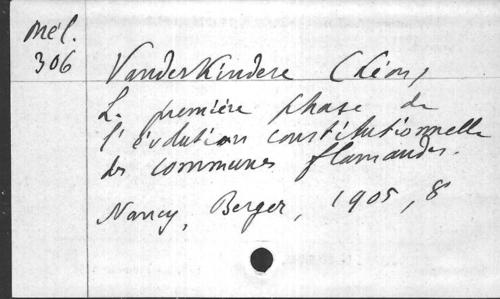 Mél.
306
Vanderkindere (Léon)
La première phase de
l'évolution constitutionnelle
des communes flamandes.
Nancy, Berger, 1905, 8°